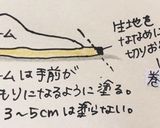 生地を
ななめに
切りお
ームは手前が
もりになるように塗る。
3〜5cmは塗らない。
巻